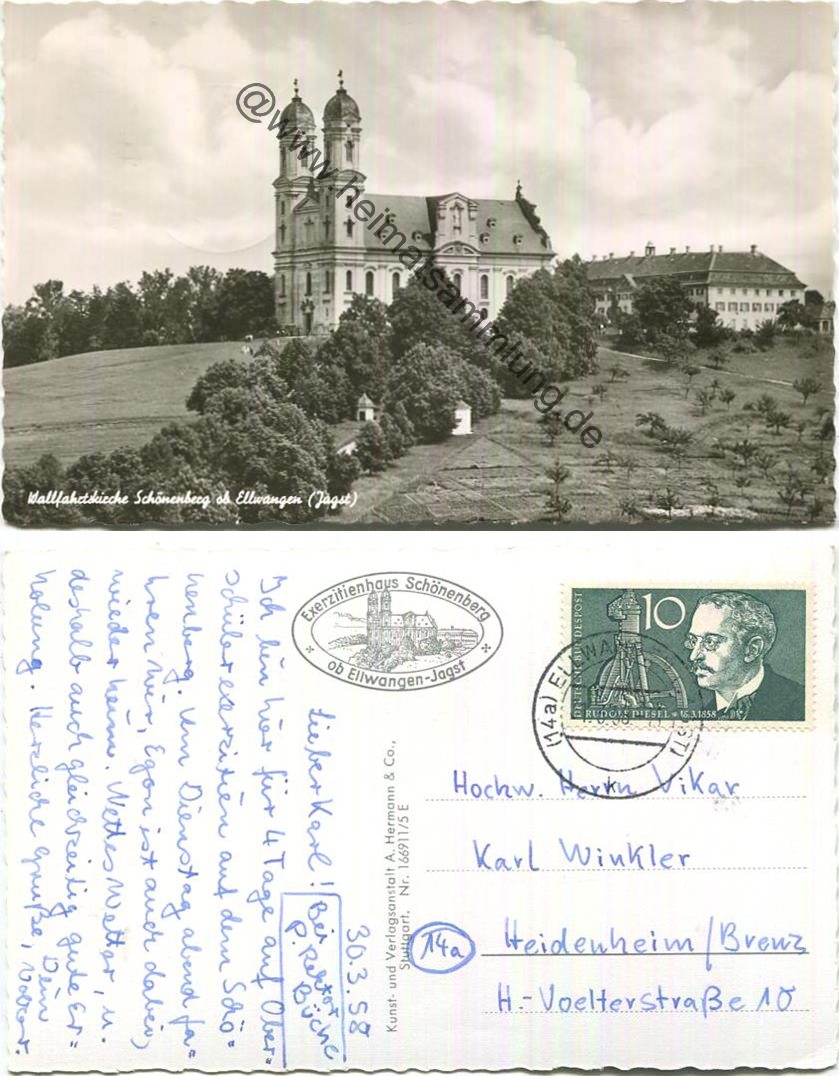 @www.heimatsammlung.de
Wallfahrtskirche Schönenberg ob Ellwangen (Jagst)
Exerzitienhaus Schönenberg
ob Ellwangen-Jagst
10
DEUTSCHE BUNDESPOST
RUDOLF DIESEL * 18.3.1858
(14a) ELLWANGEN (JAGST)
k
30.3.58
Lieber Karl!
Bei
P. Rektor
Büche
Ich bin hier für 4 Tage auf Ober=
schülerexerzitien auf dem Schö=
nenberg. Am Dienstag abend fa=
hren wir, Egon ist auch dabei,
wieder heim. Nettes Wetter, u.
deshalb auch gleichzeitig gute Er=
holung. Herzliche Grüße, Dein
Kunst- und Verlagsanstalt A. Hermann & Co.,
Stuttgart. Nr. 166911/5 E
Hochw. Herrn Vikar
Karl Winkler
14a Heidenheim/Brenz
H.-Voelterstraße 10